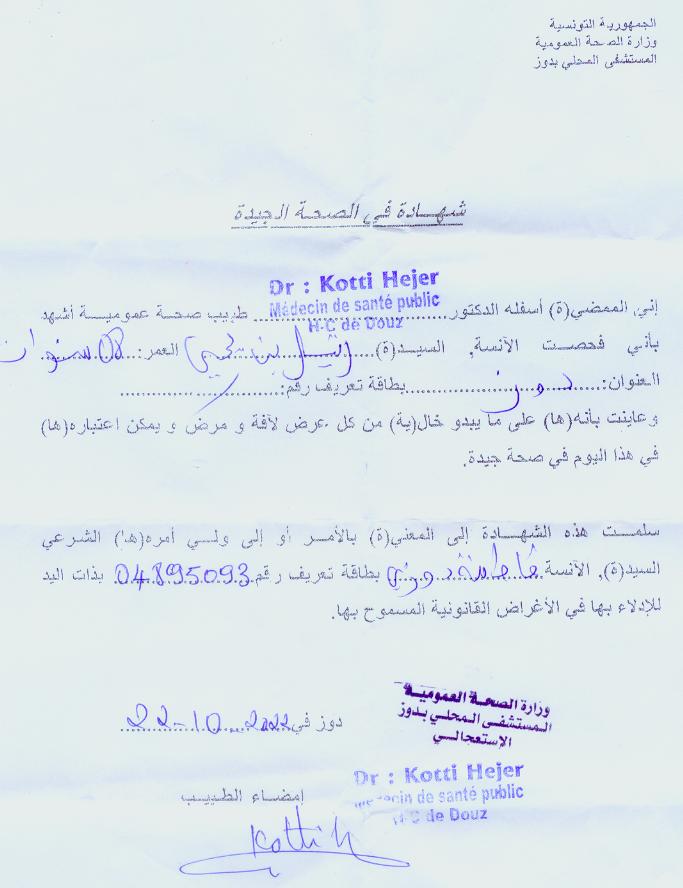 الجمهورية التونسية
وزارة الصحة العمومية
المستشفى المحلي بدوز
شهادة في الصحة الجيدة
Dr : Kotti Hejer
Médecin de santé public
H-C de Douz
إني الممضي(ة) أسفله الدكتور طبيب صحة عمومية أشهد
بأني فحصت الآنسة, السيد(ة) بن يحيى العمر: 08 سنوات
العنوان: دوز بطاقة تعريف رقم: /
و عاينت بأنه(ها) على ما يبدو خال(ية) من كل عرض لآفة و مرض و يمكن اعتباره(ها)
في هذا اليوم في صحة جيدة.
سلمت هذه الشهادة إلى المعني(ة) بالأمر أو إلى ولي أمره(ها) الشرعي
السيد(ة), الآنسة فاطمة بطاقة تعريف رقم 04895093 بذات اليد
للإدلاء بها في الأغراض القانونية المسموح بها.
وزارة الصحة العمومية
المستشفى المحلي بدوز
الإستعجالي
دوز في 22-10-2022
Dr : Kotti Hejer
Médecin de santé public
H-C de Douz
إمضاء الطبيب
Kotti h